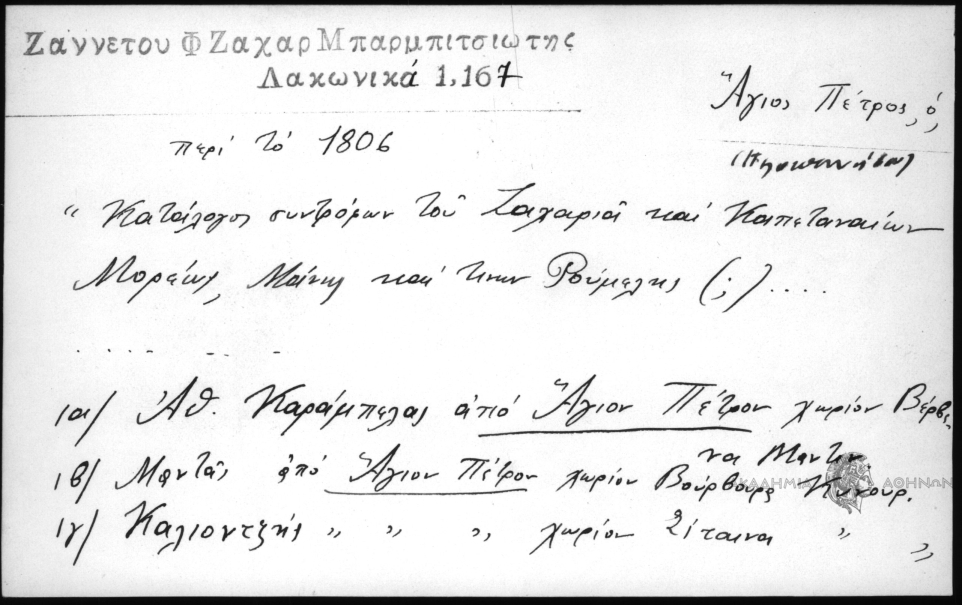 Ζαννετου Φ Ζαχαρ Μπαρμπιτσιωτης
Λακωνικά 1,167
Ἅγιος Πέτρος, ὁ,
(Πελοποννήσου)
περί τό 1806
“ Κατάλογος συντρόφων τοῦ Ζαχαριᾶ καί Καπεταναίων
Μορέως, Μάνης καί Ρούμελης (;) ....
..... ..... ...
ια/ Ἀθ. Καράμπελας ἀπό Ἅγιον Πέτρον χωρίον Βέρβε-
να Μαντιν.
ιβ/ Μαντᾶς ἀπό Ἅγιον Πέτρον χωρίον Βούρβουρα Κυνουρ.
ΑΚΑΔΗΜΙΑ ΑΘΗΝΩΝ
ιγ/ Καλιοντζής „ „ „ χωρίον Σίταινα „ „